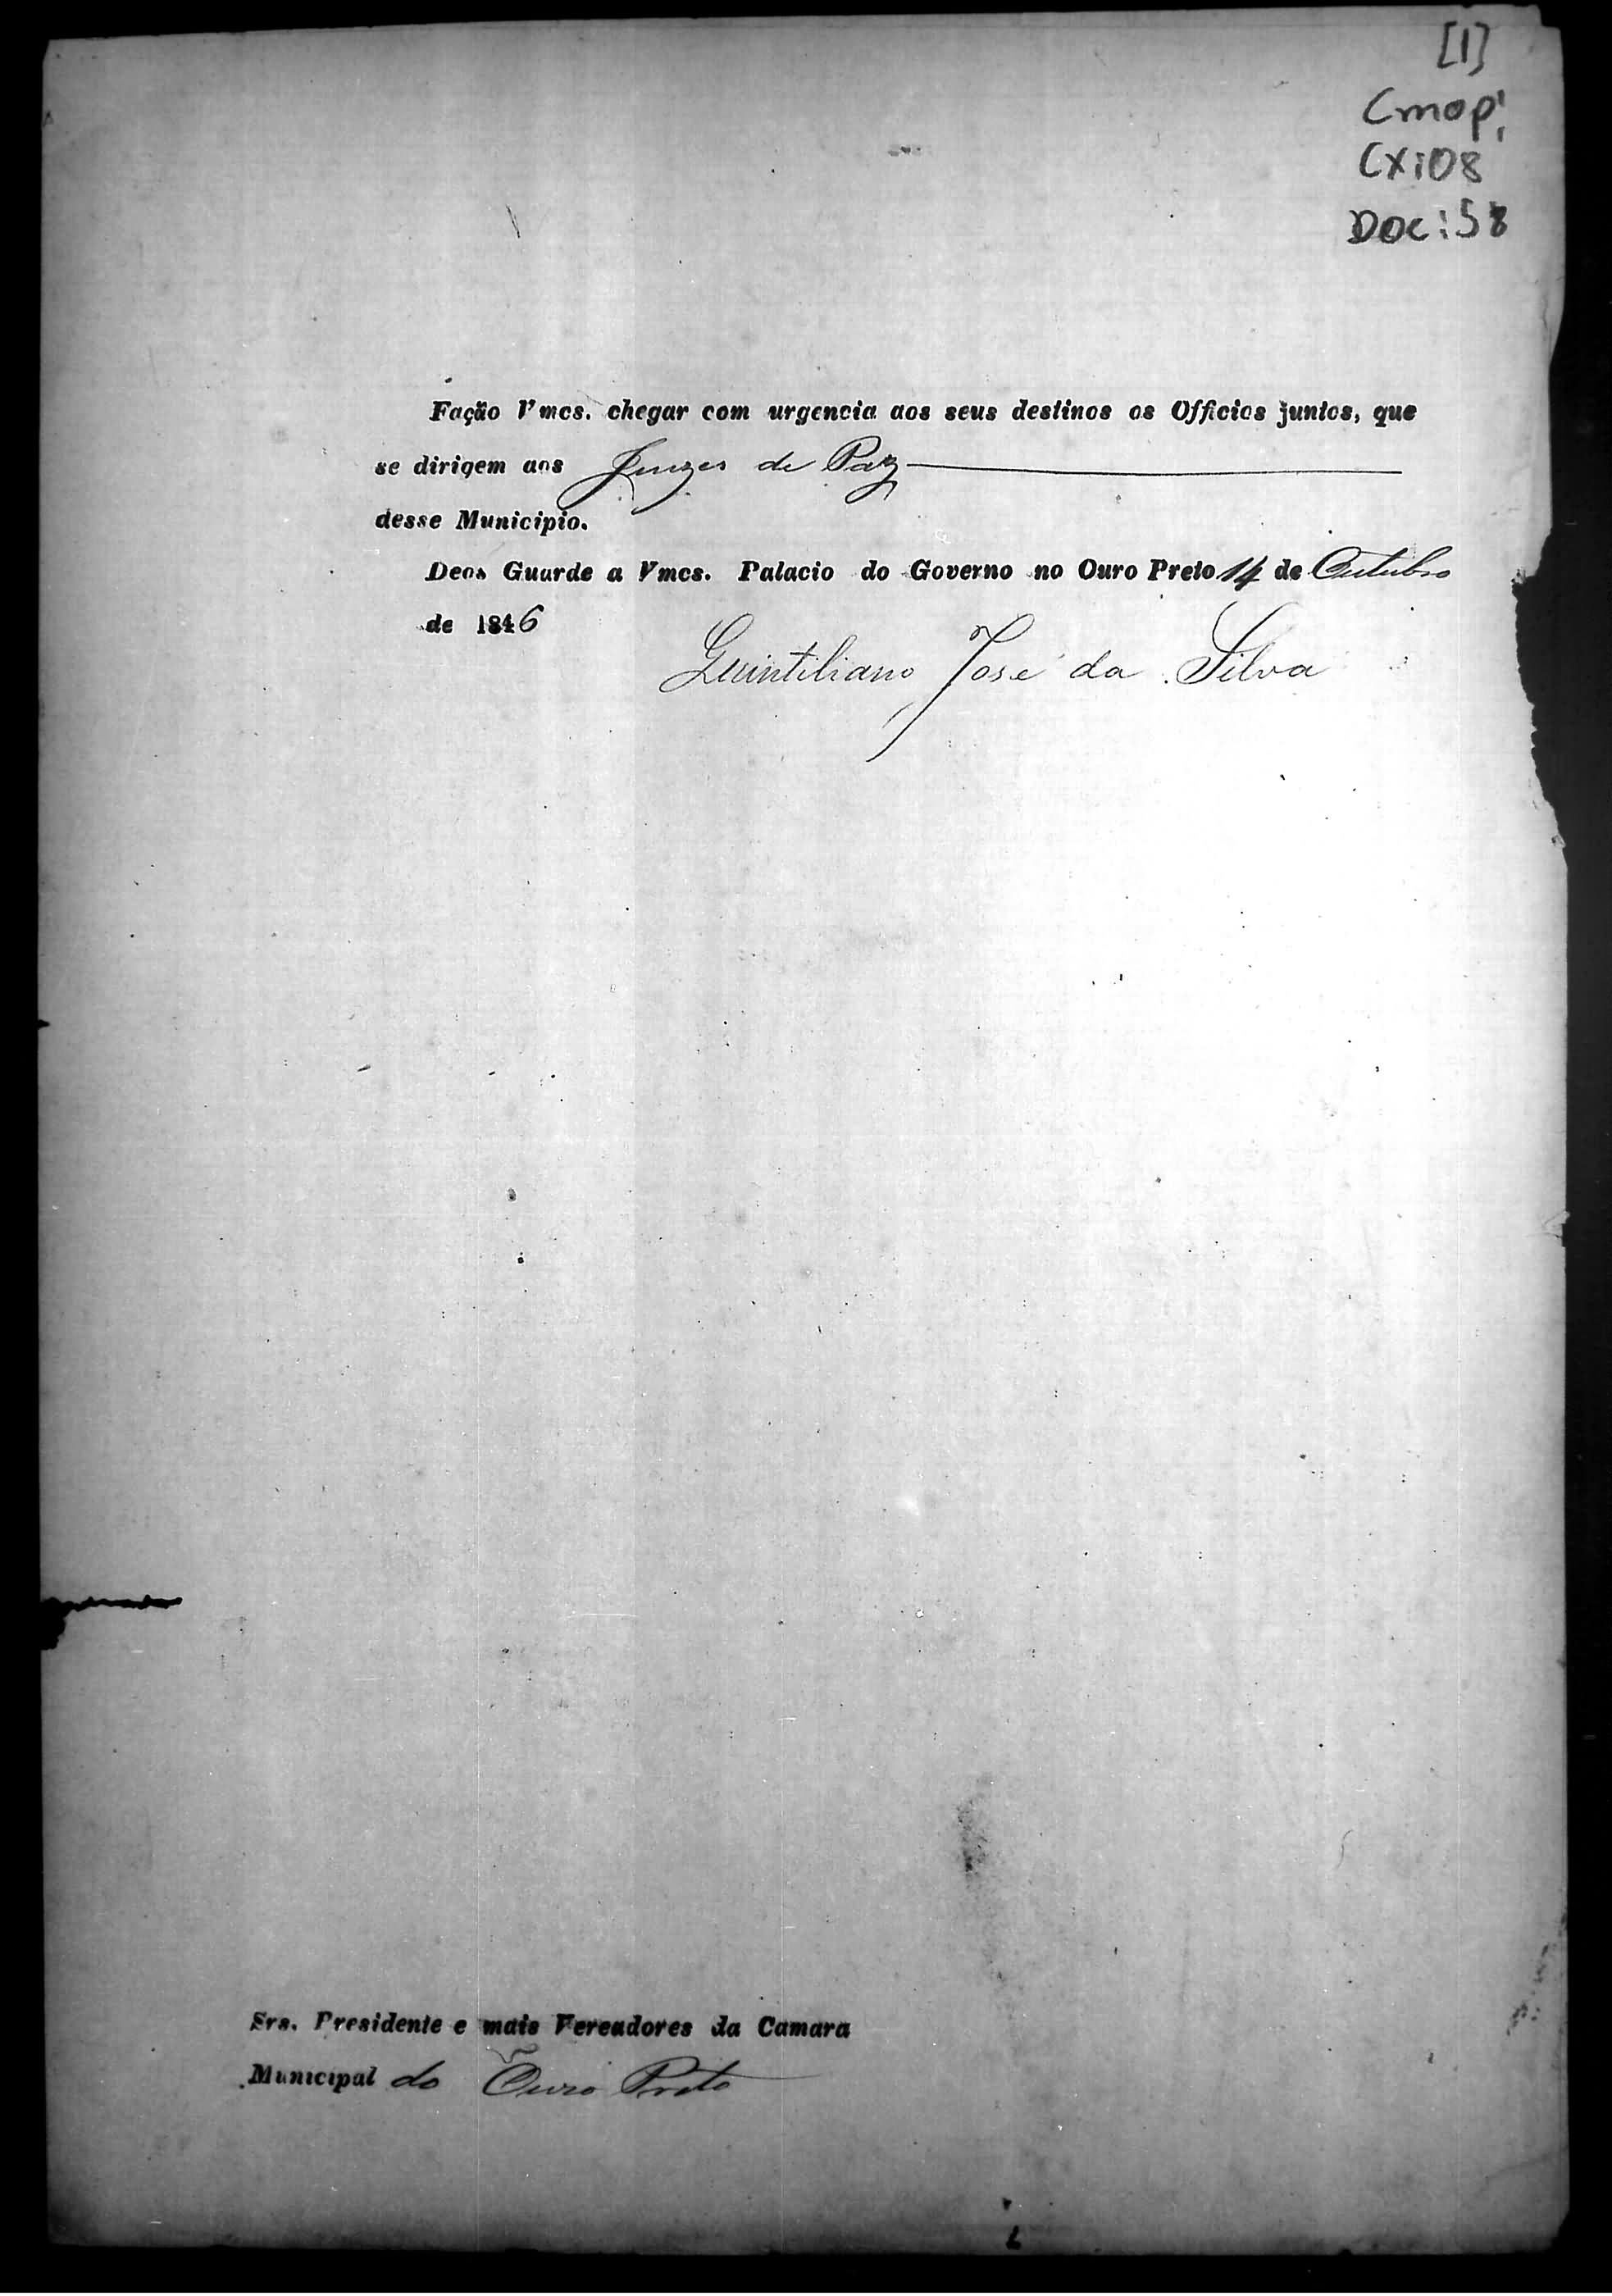 [1]
Cmop!
CX:08
Doc:58
Fação Vmcs. chegar com urgencia aos seus destinos os Officios juntos, que
se dirigem aos Juizes de Paz
desse Municipio.
Deos Guarde a Vmcs. Palacio do Governo no Ouro Preto 14 de Outubro
de 1846
Quintiliano José da Silva
Srs. Presidente e mais Vereadores da Camara
Municipal do Ouro Preto